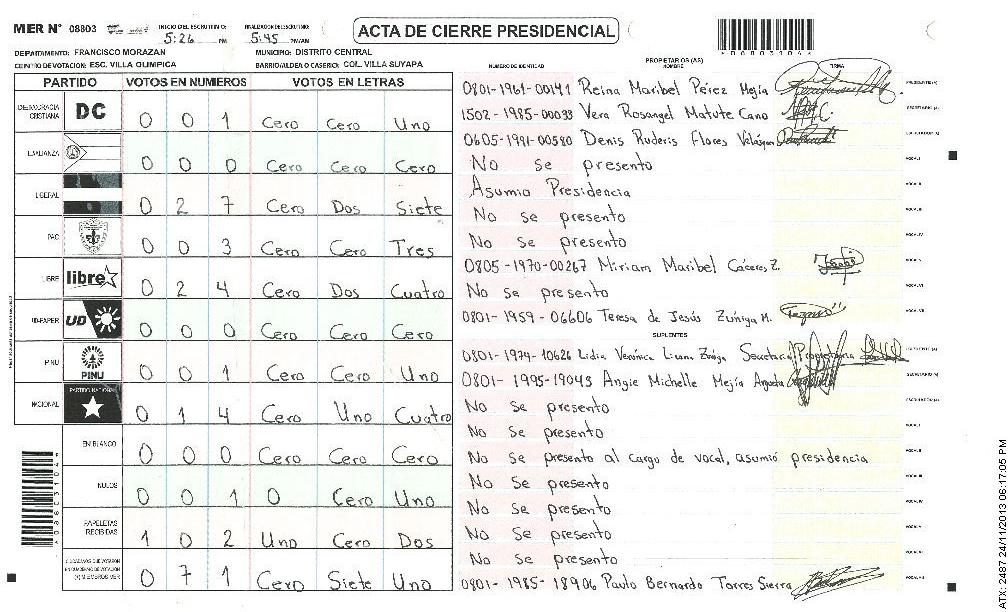 MER N° 08803 INICIO DEL ESCRUTINIO: 5:26 PM FINALIZACION DEL ESCRUTINIO: 5:45 PM/AM
ACTA DE CIERRE PRESIDENCIAL
DEPARTAMENTO: FRANCISCO MORAZAN MUNICIPIO: DISTRITO CENTRAL
CENTRO DE VOTACION: ESC. VILLA OLIMPICA BARRIO/ALDEA O CASERIO: COL. VILLA SUYAPA
PARTIDO VOTOS EN NUMEROS VOTOS EN LETRAS
DEMOCRACIA CRISTIANA DC 0 0 1 Cero Cero Uno
0 0 0 Cero Cero Cero
LIBERAL 0 2 7 Cero Dos Siete
PAC 0 0 3 Cero Cero Tres
LIBRE libre 0 2 4 Cero Dos Cuatro
UD-FAPER UD 0 0 0 Cero Cero Cero
PINU PINU 0 0 1 Cero Cero Uno
NACIONAL PARTIDO NACIONAL 0 1 4 Cero Uno Cuatro
EN BLANCO 0 0 0 Cero Cero Cero
NULOS 0 0 1 0 Cero Uno
PAPELETAS RECIBIDAS 1 0 2 Uno Cero Dos
0 7 1 Cero Siete Uno
NUMERO DE IDENTIDAD PROPIETARIOS (AS) FIRMA
0801-1961-00141 Reina Maribel Pérez Mejía PRESIDENTE(A)
1502-1985-00033 Vera Rosangel Matute Cano SECRETARIO (A)
0605-1991-00580 Denis Ruderis Flores Velásquez ESCRUTADOR (A)
No se presento VOCAL I
Asumio Presidencia VOCAL II
No se presento VOCAL III
No se presento VOCAL IV
0805-1970-00267 Miriam Maribel Cáceres Z. VOCAL V
No se presento VOCAL VI
0801-1959-06606 Teresa de Jesús Zúñiga M. VOCAL VII
SUPLENTES
0801-1974-10626 Lidia Verónica Secretaria Propietaria
0801-1995-19043 Angie Michelle Mejía Argueta SECRETARIO (A)
No se presento ESCRUTADOR (A)
No se presento VOCAL I
No se presento al cargo de vocal, asumió presidencia VOCAL II
No se presento
No se presento VOCAL IV
No se presento VOCAL V
No se presento
0801-1985-18906 Paulo Bernardo Torres Sierra
ATX-2487 24/11/2013 06:17:05 PM